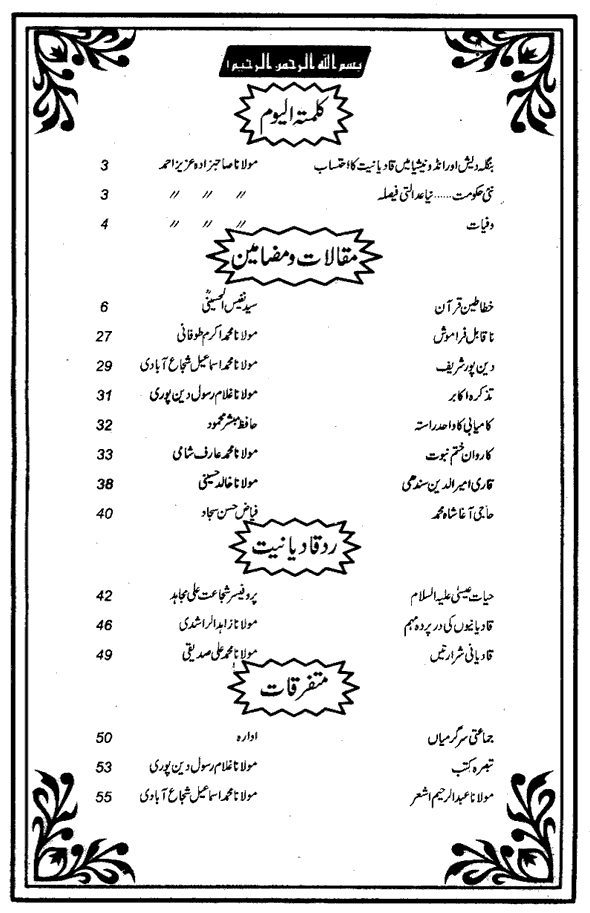 بسم الله الرحمن الرحيم!
کلمتہ الیوم
بنگلہ دیش اور انڈونیشیا میں قادیانیت کا احتساب مولانا صاحبزادہ عزیز احمد 3
نئی حکومت......نیا عدالتی فیصلہ // // // 3
وفیات // // // 4
مقالات و مضامین
خطاطین قرآن سید نفیس الحسینیؒ 6
ناقابل فراموش مولانا محمد اکرم طوفانی 27
دین پور شریف مولانا محمد اسماعیل شجاع آبادی 29
تذکرہ اکابر مولانا غلام رسول دین پوری 31
کامیابی کا واحد راستہ حافظ مبشر محمود 32
کاروان ختم نبوت مولانا محمد عارف شامی 33
قاری امیر الدین سندھی مولانا خالد حسینی 38
حاجی آغا شاہ محمد فیاض حسن سجاد 40
رد قادیانیت
حیات عیسیٰ علیہ السلام پروفیسر شجاعت علی مجاہد 42
قادیانیوں کی در پردہ مہم مولانا زاہد الراشدی 46
قادیانی شرارتیں مولانا محمد علی صدیقی 49
متفرقات
جماعتی سرگرمیاں ادارہ 50
تبصرہ کتب مولانا غلام رسول دین پوری 53
مولانا عبدالرحیم اشعر مولانا محمد اسماعیل شجاع آبادی 55